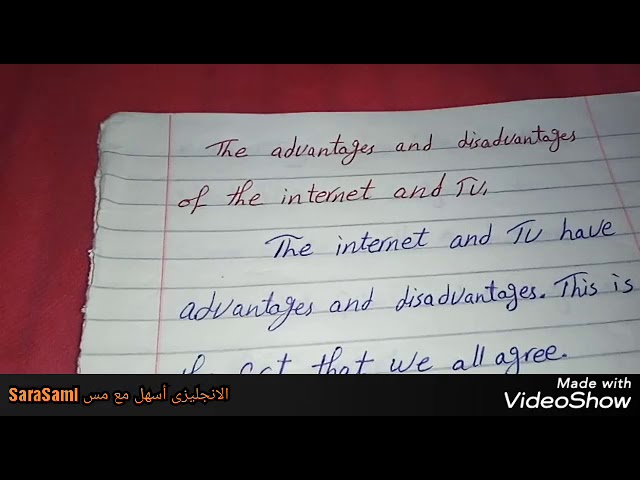 The advantages and disadvantages
of the internet and TV.
The internet and TV have
advantages and disadvantages. This is
fact that we all agree.
SaraSamI الانجليزى أسهل مع مس
Made with
VideoShow